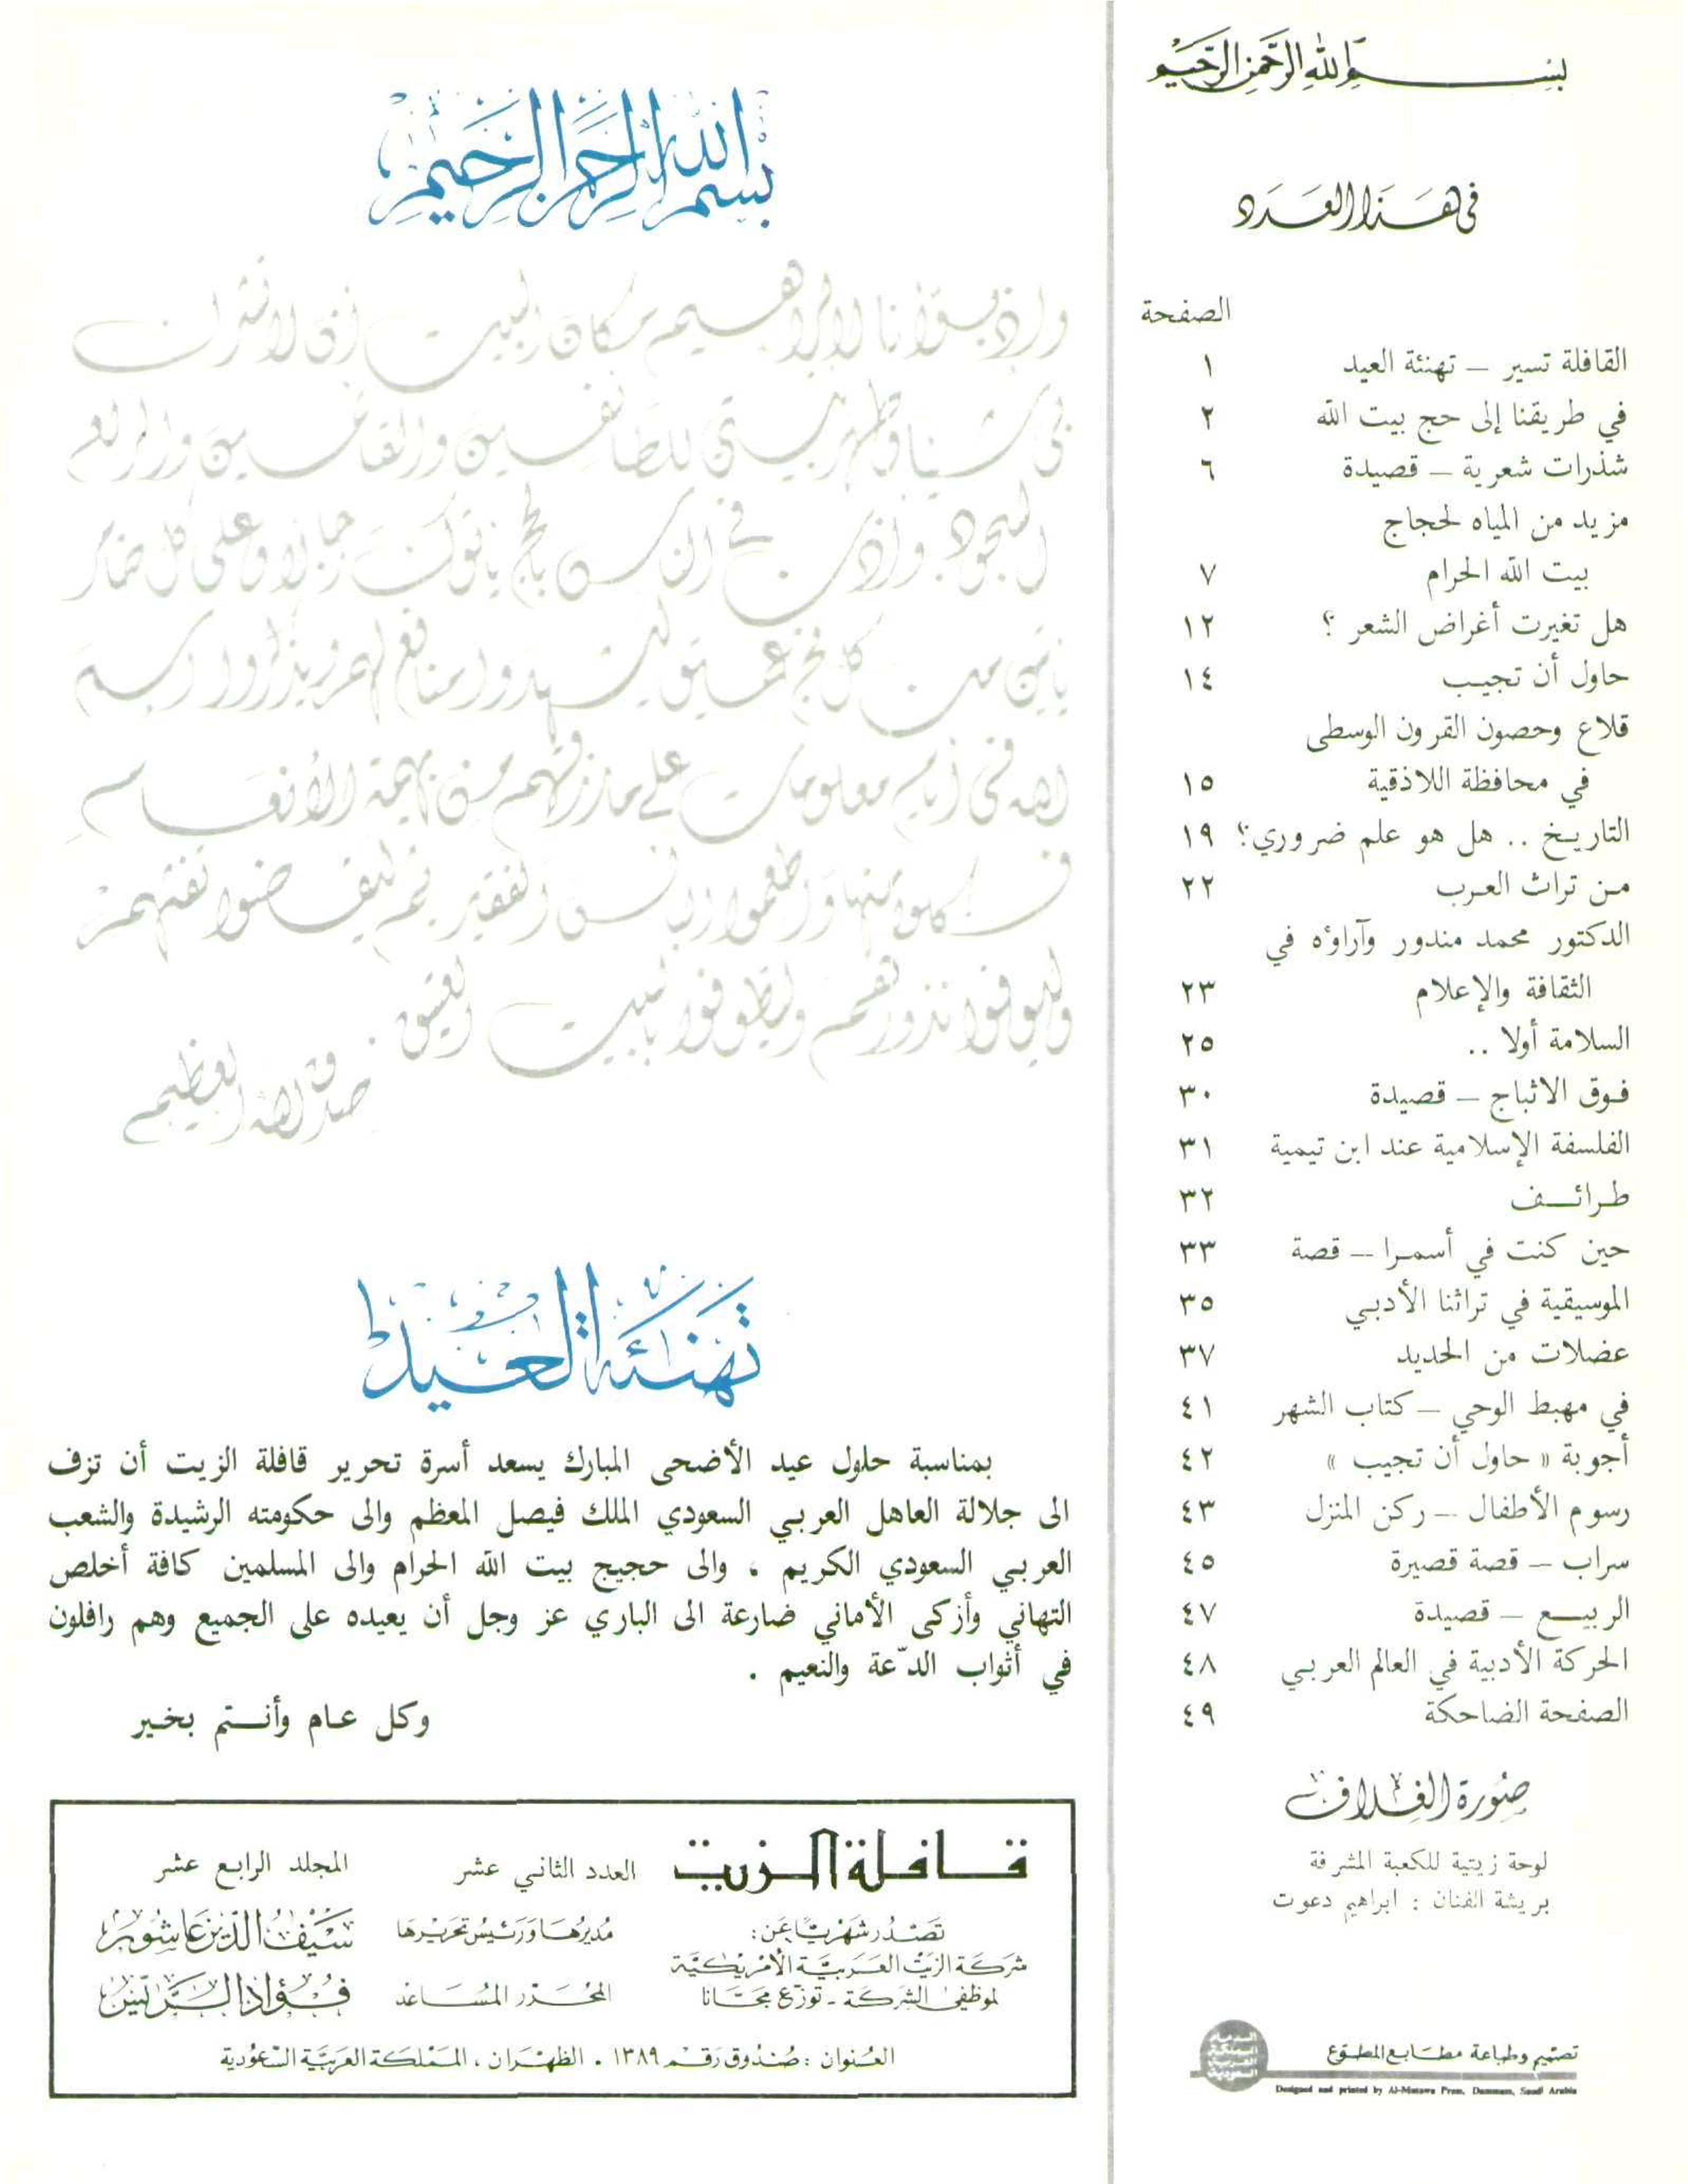 بسم الله الرحمن الرحيم
في هذا العدد
الصفحة
القافلة تسير – تهنئة العيد ١
في طريقنا إلى حج بيت الله ٢
شذرات شعرية – قصيدة ٦
مزيد من المياه لحجاج
بيت الله الحرام ٧
هل تغيرت أغراض الشعر ؟ ١٢
حاول أن تجيب ١٤
قلاع وحصون القرون الوسطى
في محافظة اللاذقية ١٥
التاريخ .. هل هو علم ضروري؟ ١٩
من تراث العرب ٢٢
الدكتور محمد مندور وآراؤه في
الثقافة والإعلام ٢٣
السلامة أولا .. ٢٥
فوق الاثباج – قصيدة ٣٠
الفلسفة الإسلامية عند ابن تيمية ٣١
طرائف ٣٢
حين كنت في أسمرا – قصة ٣٣
الموسيقية في تراثنا الأدبي ٣٥
عضلات من الحديد ٣٧
في مهبط الوحي – كتاب الشهر ٤١
أجوبة « حاول أن تجيب » ٤٢
رسوم الأطفال – ركن المنزل ٤٣
سراب – قصة قصيرة ٤٥
الربيع – قصيدة ٤٧
الحركة الأدبية في العالم العربي ٤٨
الصفحة الضاحكة ٤٩
صورة الغلاف
لوحة زيتية للكعبة المشرفة
بريشة الفنان : ابراهيم دعوت
تصميم وطباعة مطابع المطوع
الدمام
المملكة
العربية
السعودية
Designed and printed by Al-Mutawa Press, Dammam, Saudi Arabia
بسم الله الرحمن الرحيم
وإذ بوأنا لإبراهيم مكان البيت أن لا تشرك
بي شيئا وطهر بيتي للطائفين والقائمين والركع
السجود. وأذن في الناس بالحج يأتوك رجالا وعلى كل ضامر
يأتين من كل فج عميق ليشهدوا منافع لهم ويذكروا اسم
الله في أيام معلومات على ما رزقهم من بهيمة الأنعام
فكلوا منها وأطعموا البائس الفقير ثم ليقضوا تفثهم
وليوفوا نذورهم وليطوفوا بالبيت العتيق .
صدق الله العظيم
تهنئة العيد
بمناسبة حلول عيد الأضحى المبارك يسعد أسرة تحرير قافلة الزيت أن تزف
الى جلالة العاهل العربي السعودي الملك فيصل المعظم والى حكومته الرشيدة والشعب
العربي السعودي الكريم ، والى حجيج بيت الله الحرام والى المسلمين كافة أخلص
التهاني وأزكى الأماني ضارعة الى الباري عز وجل أن يعيده على الجميع وهم رافلون
في أثواب الدّعة والنعيم .
وكل عام وأنتم بخير
قافلة الزيت العدد الثاني عشر المجلد الرابع عشر
تصدر شهريًا عن:
شركة الزيت العربية الأمريكية
لموظفي الشركة - توزع مجانا
مديرها ورئيس تحريرها سيف الدين عاشور
المحرر المساعد فؤاد الريس
العنوان : صندوق رقم ١٣٨٩ . الظهران ، المملكة العربية السعودية